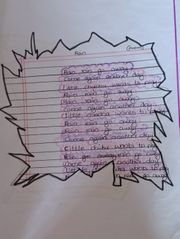 Rain
Rain rain go away
Come again another day
Little want's to play
Rain rain go away
Rain rain go away
Come again another day
Little wants to play
Rain rain go away
Rain rain go away
Come again another day
Little wants to play
rain go away
Come again another day
Little wants to play
go away